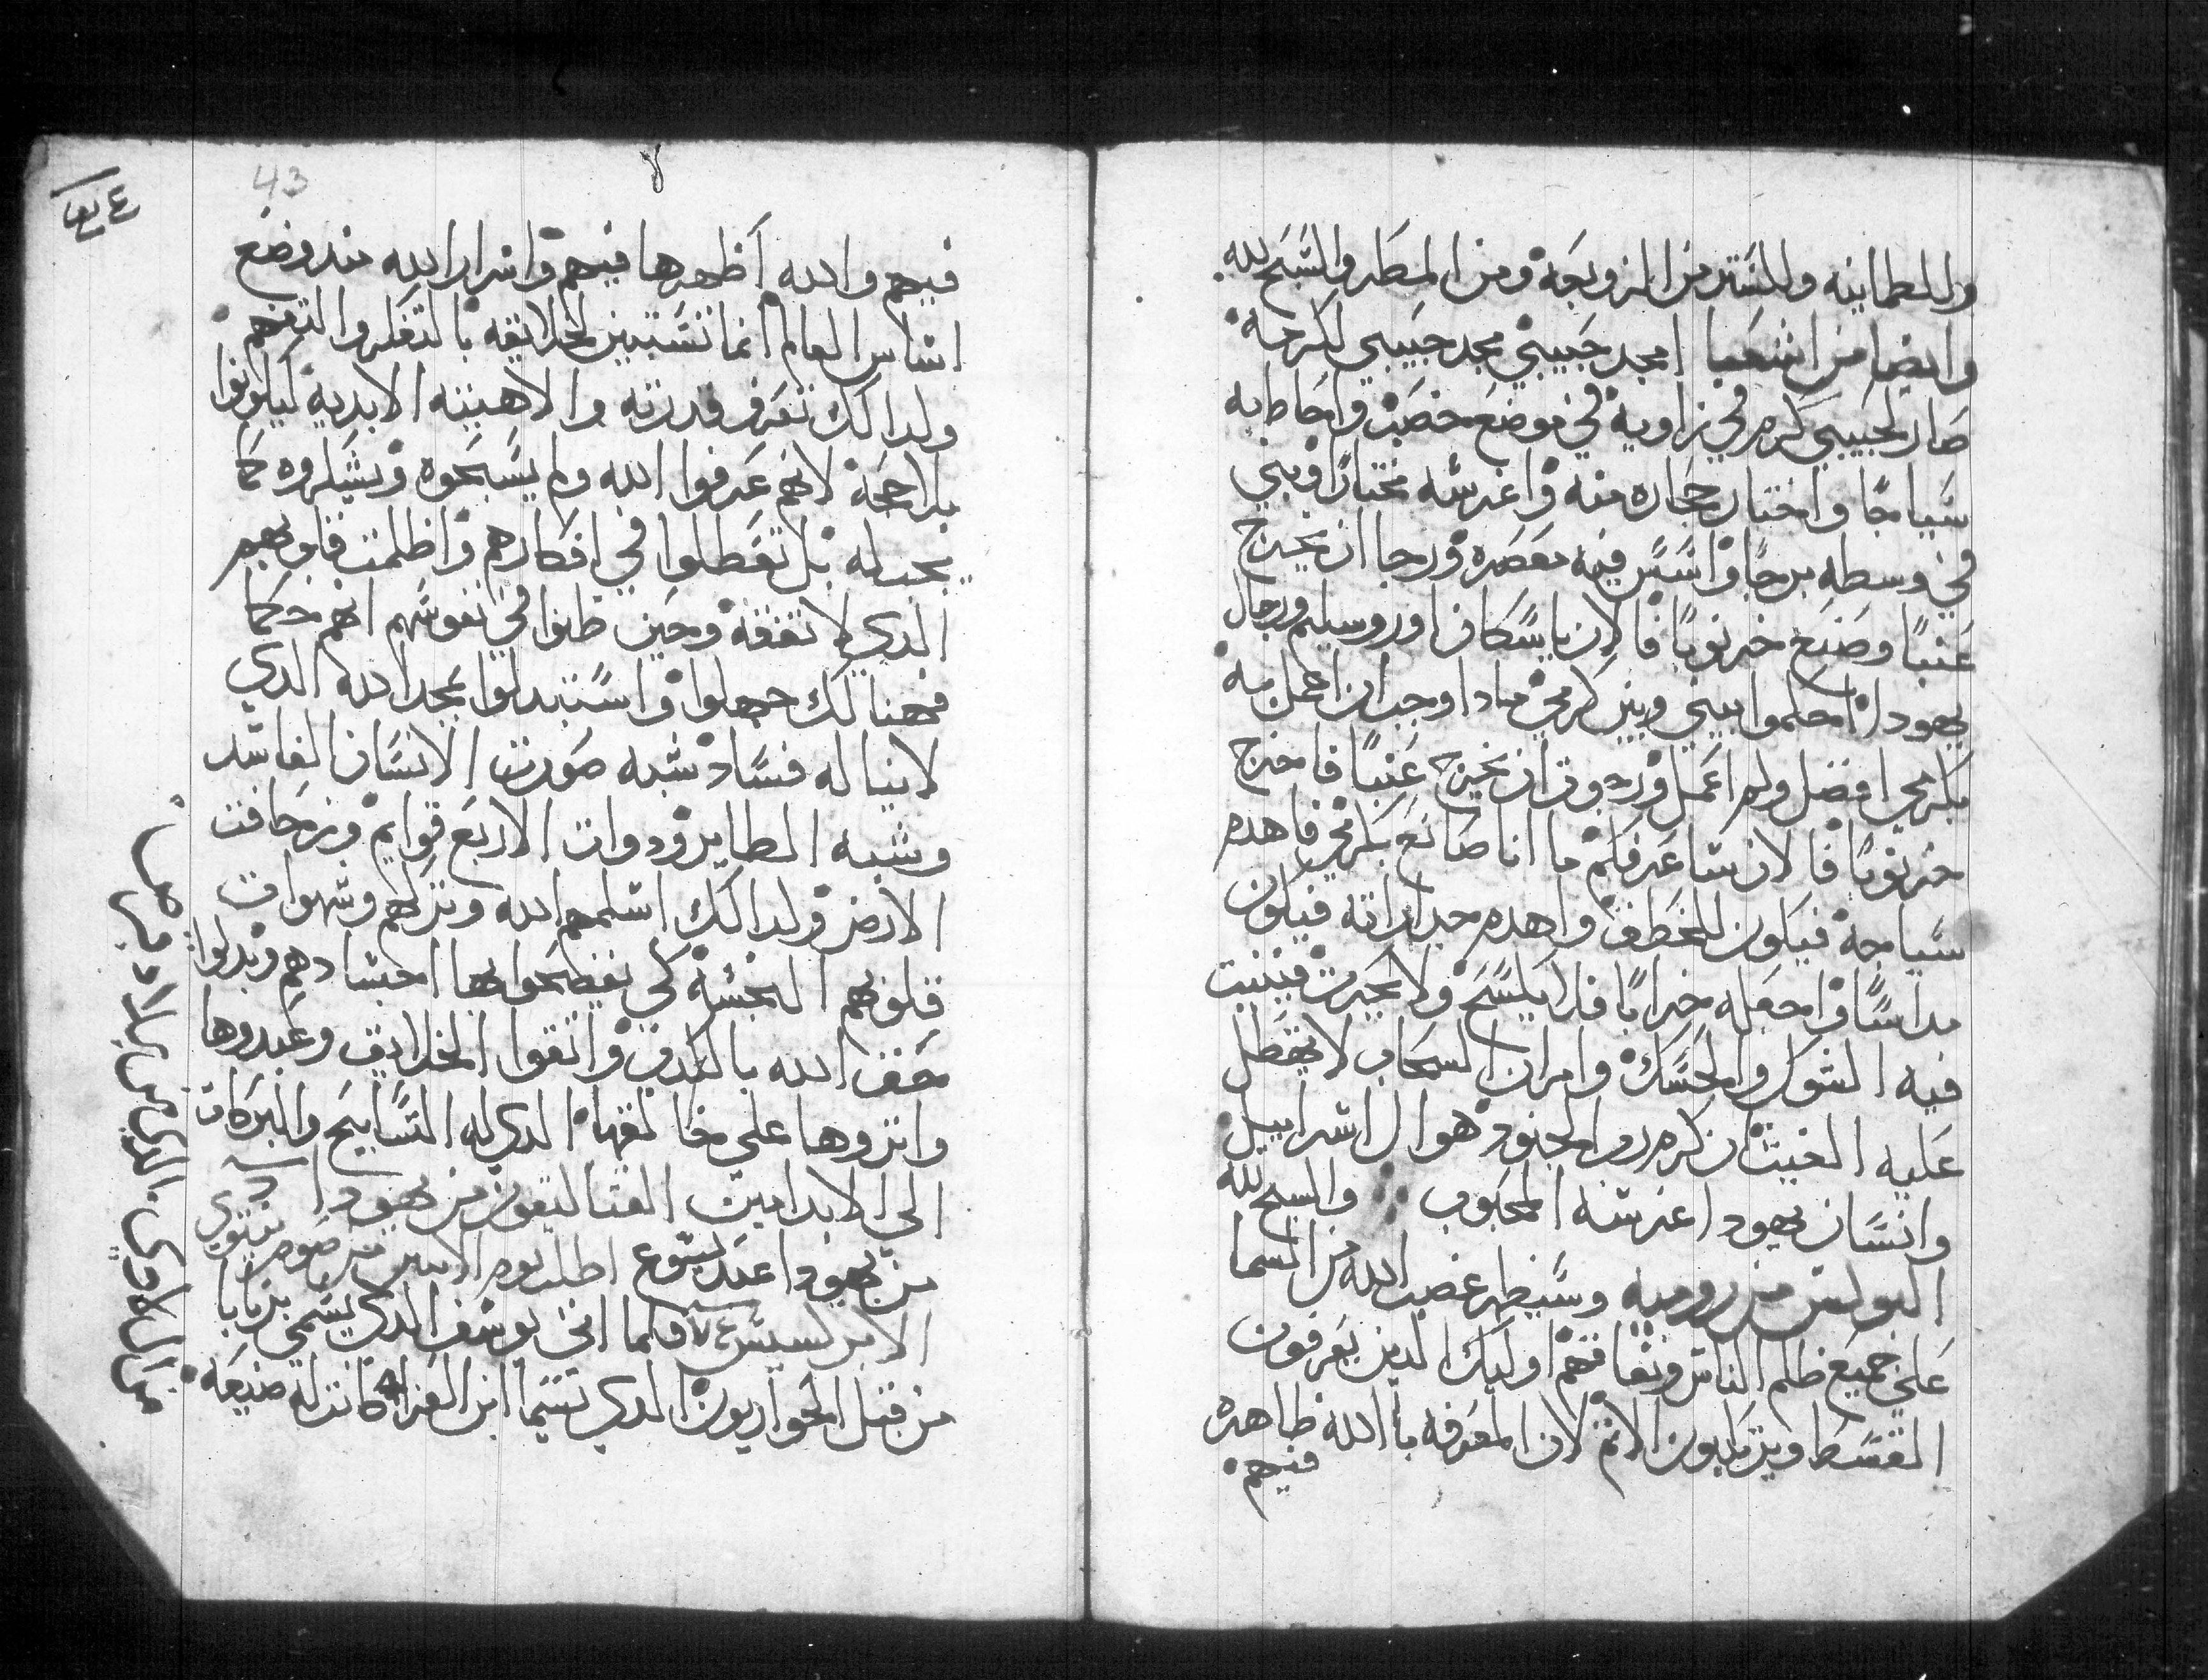 وللطمانينه وللستر من الزوبعة ومن المطر والسبح لله
وايضا من اشعيا امجد حبيبي مجد حبيبي لكرمة
صار لحبيبي كرم في زاوية في موضع خصب واحاط به
سياجًا واختار حجاره منه واغرسه مختارًا وبني
في وسطه برجًا واسس فيه معصره ورجا ان يخرج
عنبًا وصنع خرنوبًا فالان يا سكان اوروسليم ورجال
يهودا احكموا بيني وبين كرمي مادا وجب ان اعمل به
بكرمي افضل ولم اعمل ورجوت ان يخرج عنبًا فاخرج
خرنوبًا فالان ساعرفكم ما انا صانع بكرمي فاهدم
سياجه فيكون للخطف واهدم جداراته فيكون
مداسًا واجعله خرابًا فلا يكسح ولا يحرث فينبت
فيه الشوك والحسك وامر ان السحاب لا يهطل
عليه الغيث ان كرم رب الجنود هو ال اسراييل
وانسان يهودا غرسه المحبوب والسبح لله
البولس من رومية وسيظهر غضب الله من السما
علي جميع ظلم الناس ونفاقهم اوليك الدين يعرفون
القسط ويرتكبون الاثم لان المعرفه بالله ظاهره
فيهم
43
فيهم والله اظهرها فيهم واسرار الله مند وضع
اساس العالم انما تستبين لخلايقه بالتفكر والتفهم
ولدالك تعرف قدرته والاهيته الابدية ليكونوا
بلا حجة لانهم عرفوا الله ولم يسبحوه ويشكروه كما
يجب له بل تعطلوا في افكارهم واظلمت قلوبهم
الدي لا تفقه وحين ظنوا في نفوسهم انهم حكما
فهنالك جهلوا واستبدلوا بمجد الله الدي
لا يناله فساد شبه صورت الانسان الفاسد
وشبه الطاير ودوات الاربع قوايم وزحافت
الارض ولدالك اسلمهم الله وتركهم وشهوات
قلوبهم النجسة كي يفضحوا بها اجسادهم وبدلوا
حق الله بالكدب واتقوا الخلايق وعبدوها
واثروها علي خالقها الدي له التسابيح والبركات
الي الابد امين القتاليقون من يهودا
من يهودا عبد يسوع اطلب يوم الاتنين من صوم نينوي
الابركسيس فكما اني يوسف الدي يسمي برنابا
من قبل الحواريون الدي تسما ابن العزا كانت له ضيعه